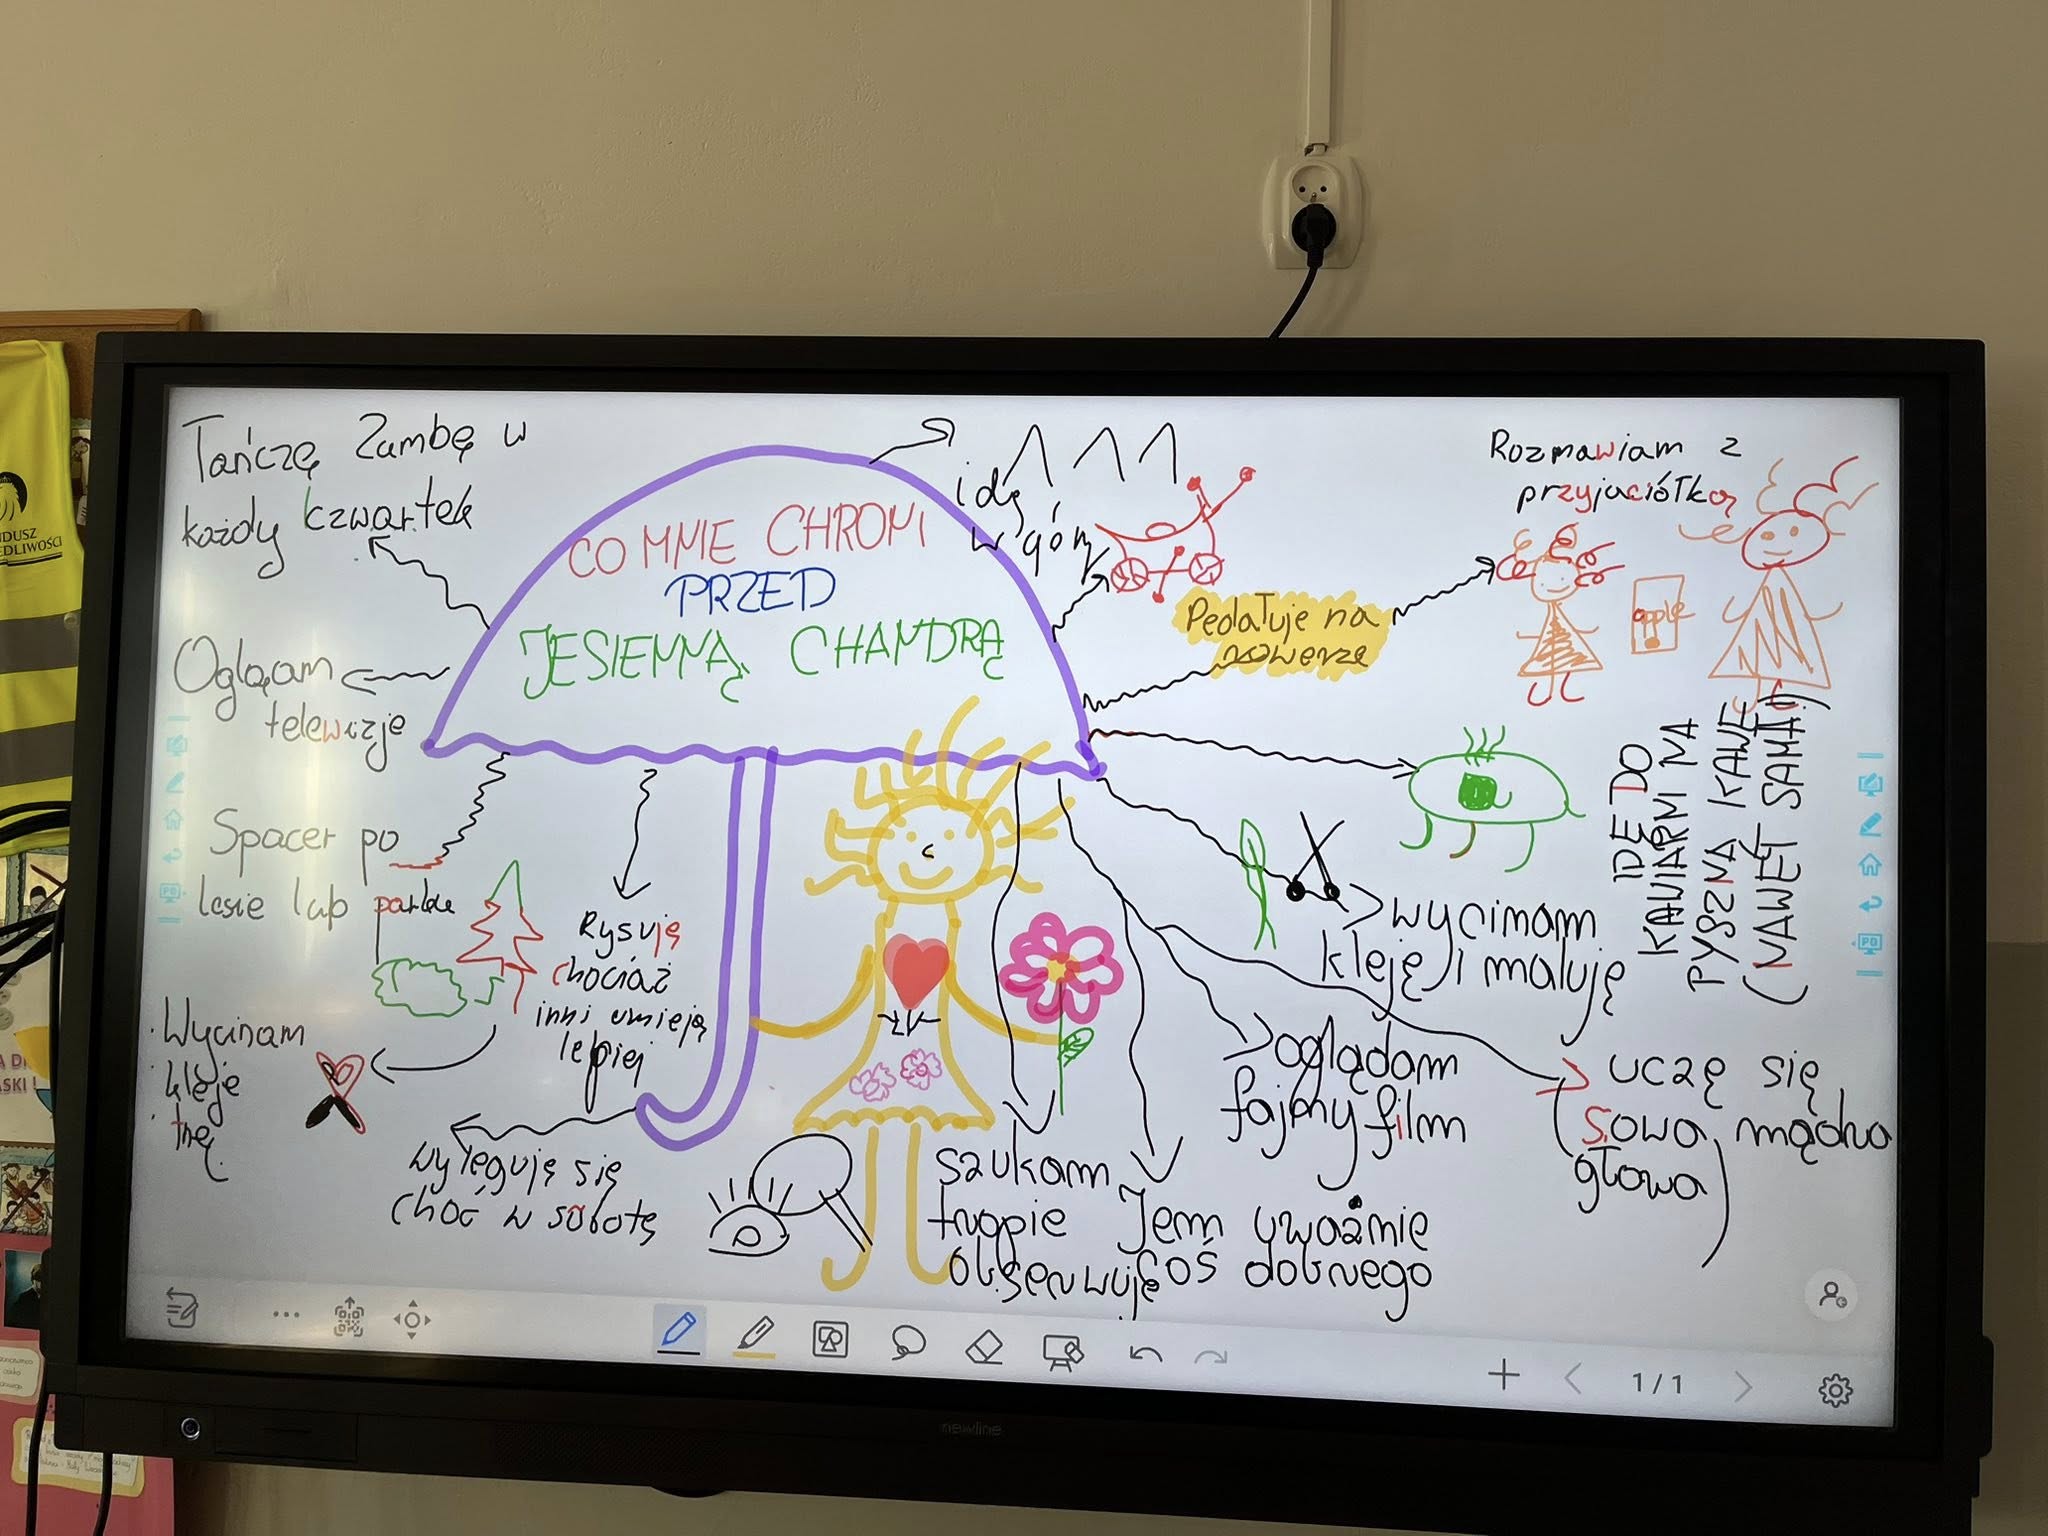 Tańczę Zumbę w
każdy czwartek
idę
w góry
CO MNIE CHRONI
PRZED
JESIENNĄ CHANDRĄ
Rozmawiam z
przyjaciółką
apple
Pedałuje na
rowerze
Oglądam
telewizje
IDĘ DO
KAWIARNI NA
PYSZNĄ KAWĘ
(NAWET SAMA!)
Spacer po
lesie lub parku
Rysuję
chociaż
inni umieją
lepiej
wycinam
kleję i maluję
Wycinam
kleje
tnę
oglądam
fajny film
uczę się
(sowa mądra
głowa)
wyleguję się
choć w sobotę
szukam
tropie
obserwuję
Jem uważnie
coś dobrego
1/1
newline
DUSZ
EDLIWOŚCI
ASKI!